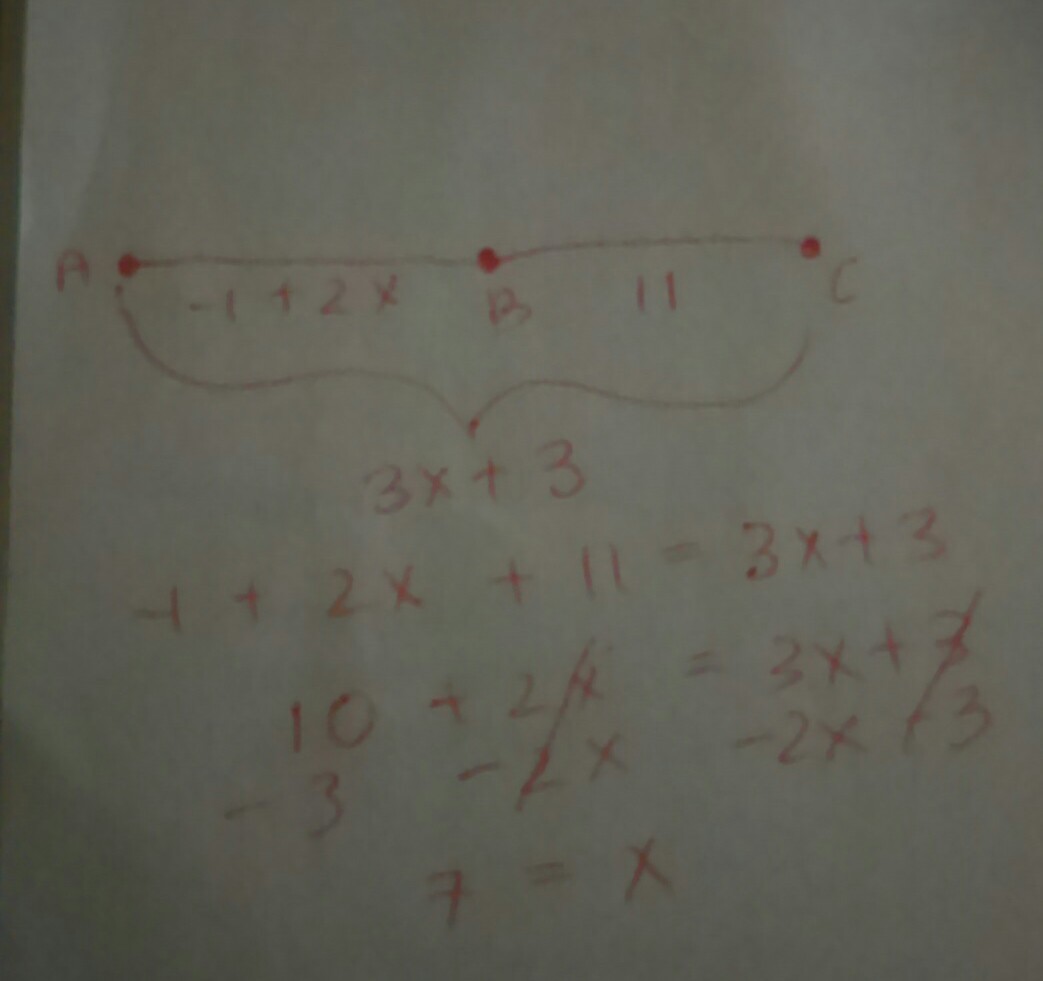 A -1 + 2x B 11 C
3x + 3
-1 + 2x + 11 = 3x + 3
10 + 2x = 3x + 3
-3 -2x -2x -3
7 = x